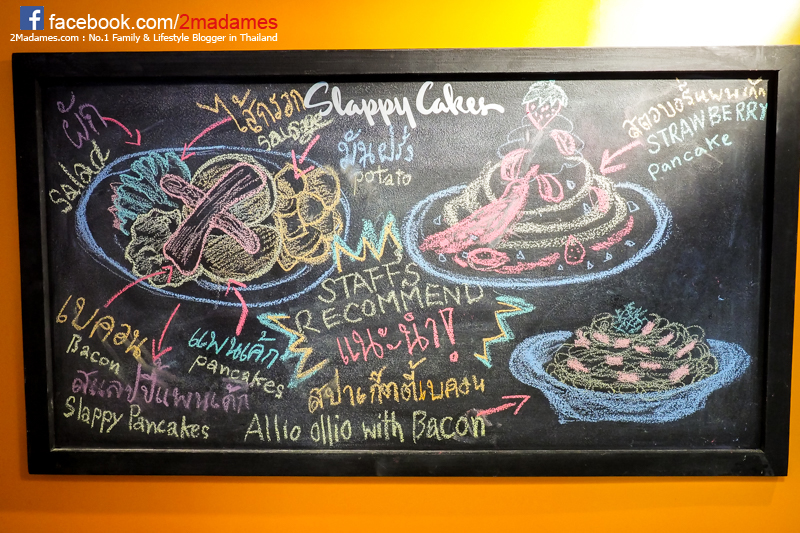 facebook.com/2madames
2Madames.com : No.1 Family & Lifestyle Blogger in Thailand
Slappy Cakes
ผัก
Salad
ไส้กรอก
sausage
มันฝรั่ง
potato
สตอบอรี่แพนเค้ก
STRAWBERRY
pancake
STAFF'S
RECOMMEND
แนะนำ!
เบคอน
Bacon
แพนเค้ก
pancakes
สแลปปี้แพนเค้ก
Slappy Pancakes
สปาเก็ตตี้เบคอน
Allio ollio with Bacon